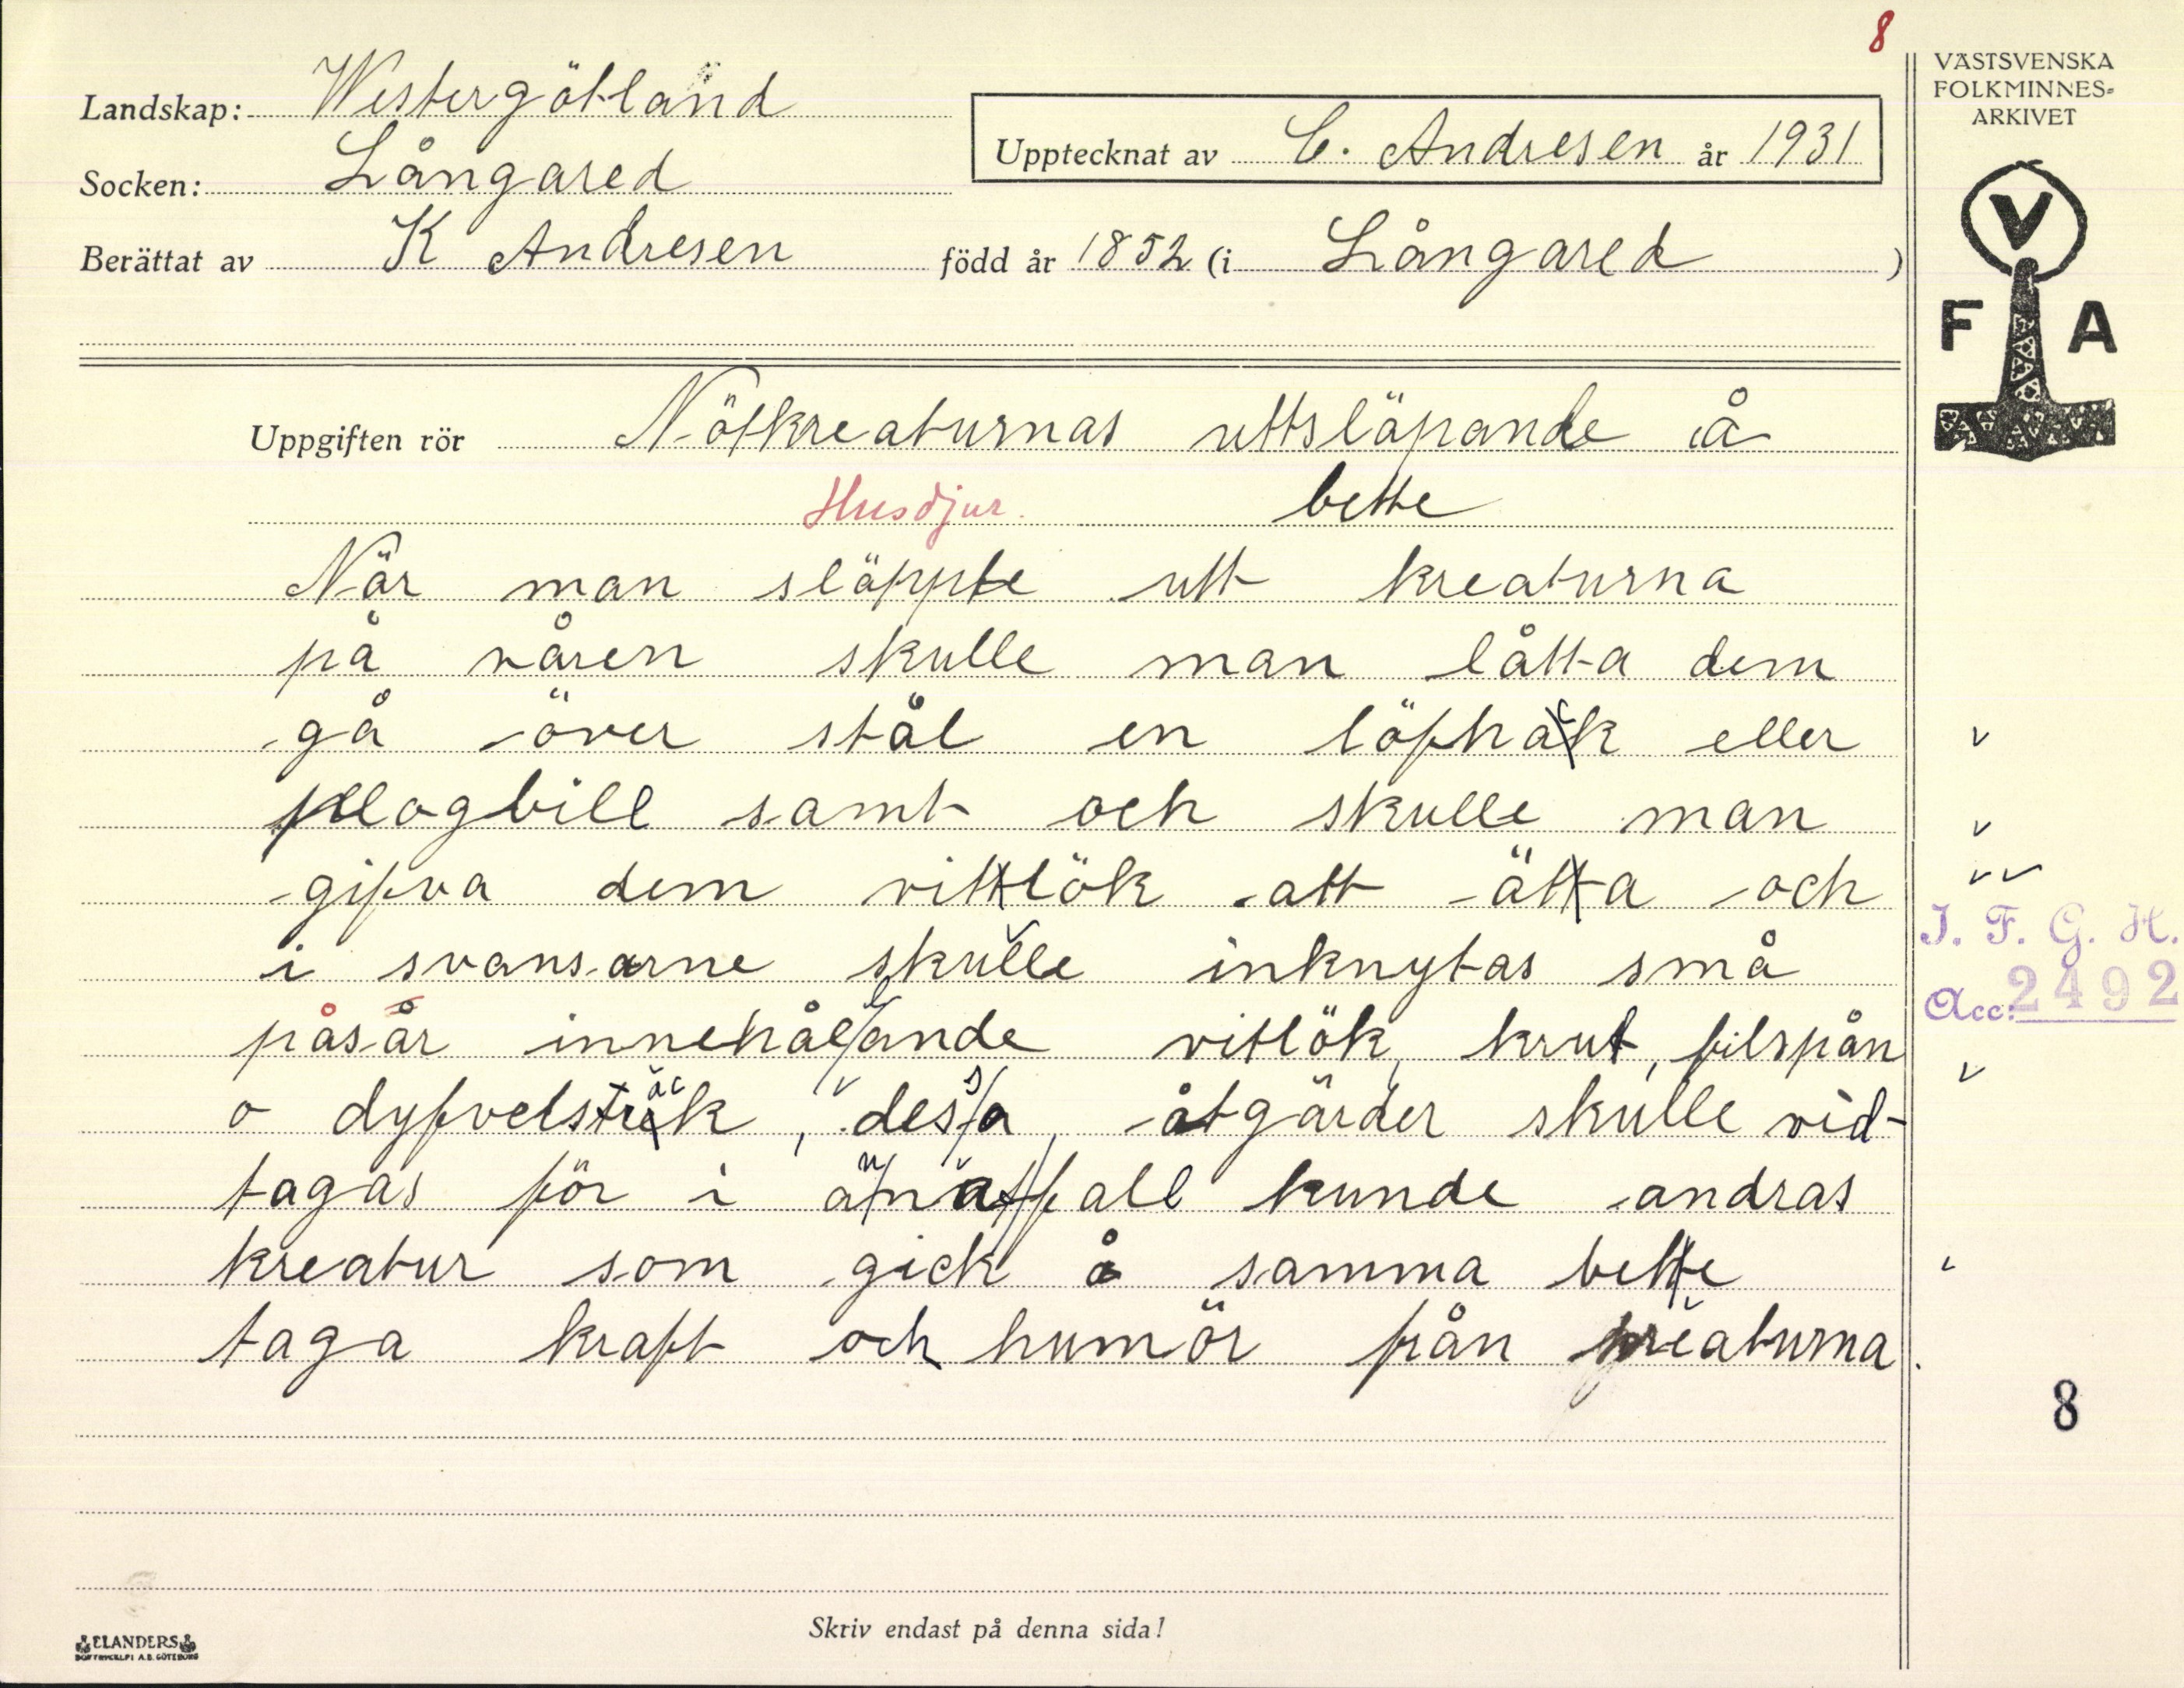 8
Landskap: Westergötland
Socken: Långared
Berättat av K Andresen född år 1852 (i Långared )
Upptecknat av C. Andresen år 1931
VÄSTSVENSKA
FOLKMINNES-
ARKIVET
V
F A
Uppgiften rör Nötkreaturnas uttsläpande å
Husdjur. bette
När man släppte utt kreaturna
på våren skulle man låtta dem
gå över stål en löfhack eller
plogbill samt och skulle man
gifva dem vitlök att äta och
i svansarne skulle inknytas små
påsår innehållande vitlök, krut, filspån
o dyfvelsträck, dessa, åtgärder skulle vid-
tagas för i annat fall kunde andras
kreatur som gick å samma bete
taga kraft och humör från kreaturna.
I. F. G. H.
Acc: 2492
8
Skriv endast på denna sida!
ELANDERS
BOKTRYCKERI A.B. GÖTEBORG